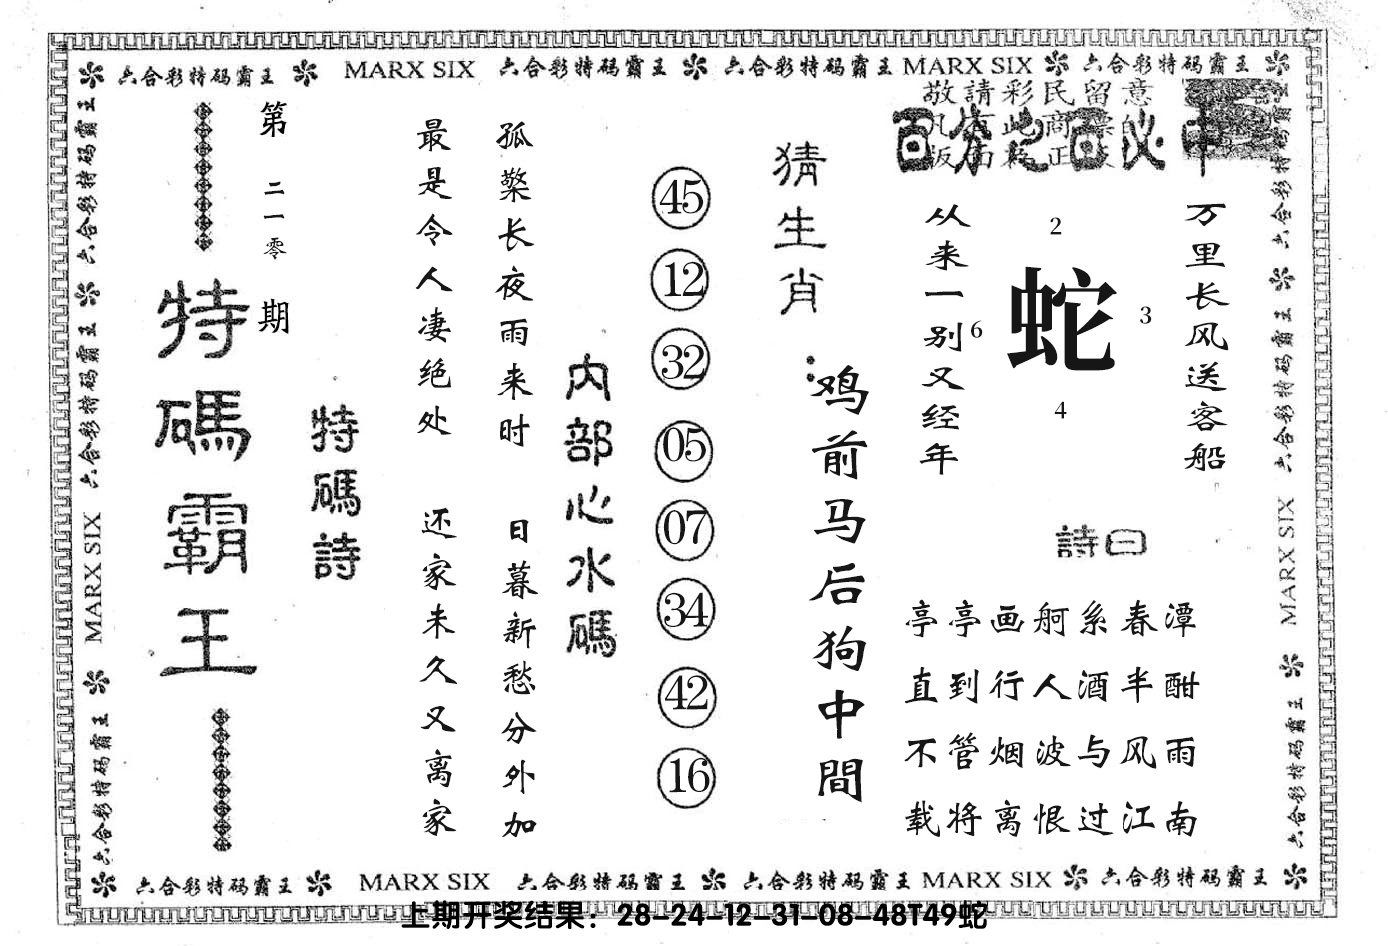 六合彩特码霸王 MARX SIX 六合彩特码霸王 六合彩特码霸王 MARX SIX 六合彩特码霸王
敬請彩民留意
百分之百必中
第二一零期
特碼霸王
特碼詩
孤檠长夜雨来时
最是令人凄绝处
日暮新愁分外加
还家未久又离家
内部心水碼
45
12
32
05
07
34
42
16
猜生肖：
鸡前马后狗中間
万里长风送客船
从来一别又经年
2
6
蛇
3
4
詩曰
亭亭画舸系春潭
直到行人酒半酣
不管烟波与风雨
载将离恨过江南
六合彩特码霸王 六合彩特码霸王 MARX SIX 六合彩特码霸王
六合彩特码霸王 六合彩特码霸王 MARX SIX 六合彩特码霸王
六合彩特码霸王 MARX SIX 六合彩特码霸王 六合彩特码霸王 MARX SIX 六合彩特码霸王
上期开奖结果：28-24-12-31-08-48T49蛇